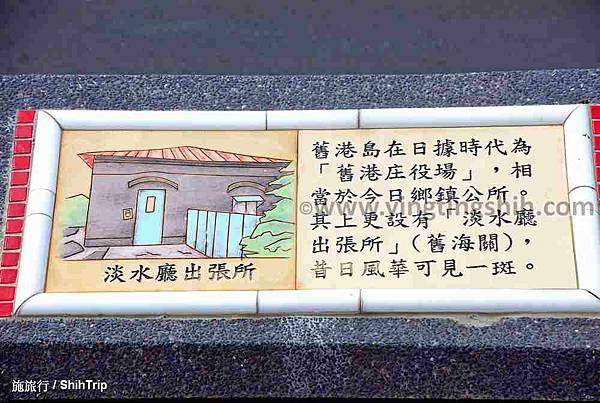 舊港島在日據時代為
「舊港庄役場」，相
當於今日鄉鎮公所。
其上更設有「淡水廳
出張所」（舊海關），
昔日風華可見一斑。
淡水廳出張所
©www.yingtingshih.com
施旅行 / ShihTrip